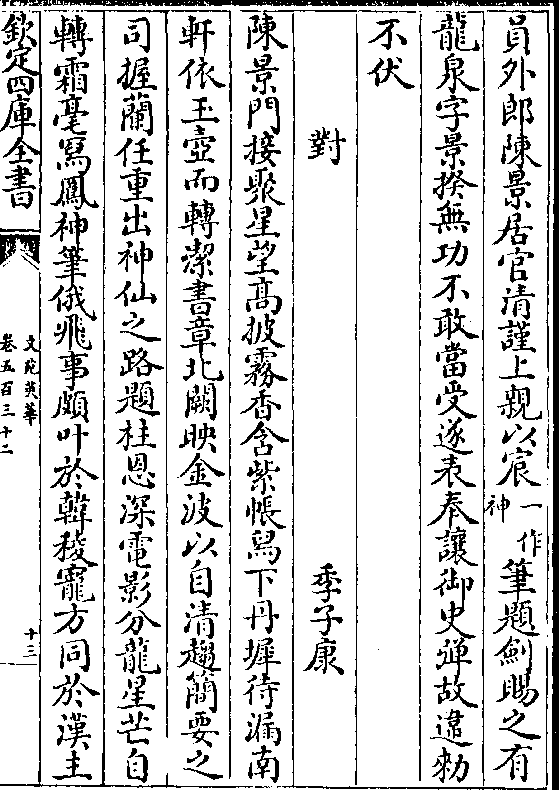 員外郎陳景居官清謹上親以宸一作神筆題劍賜之有
龍泉字景揆無功不敢當受遂表奉讓御史彈故違勑
不伏
對 季子康
陳景門接聚星望髙披霧香含紫帳舄下丹墀待漏南
軒依玉壺而轉潔書章北闕映金波以自清趨簡要之
司握蘭任重出神仙之路題柱恩深電影分龍星芒自
轉霜毫寫鳳神筆俄飛事頗叶於韓稜寵方同於漢主
欽定四庫全書
文苑英華
卷五百三十二
十三